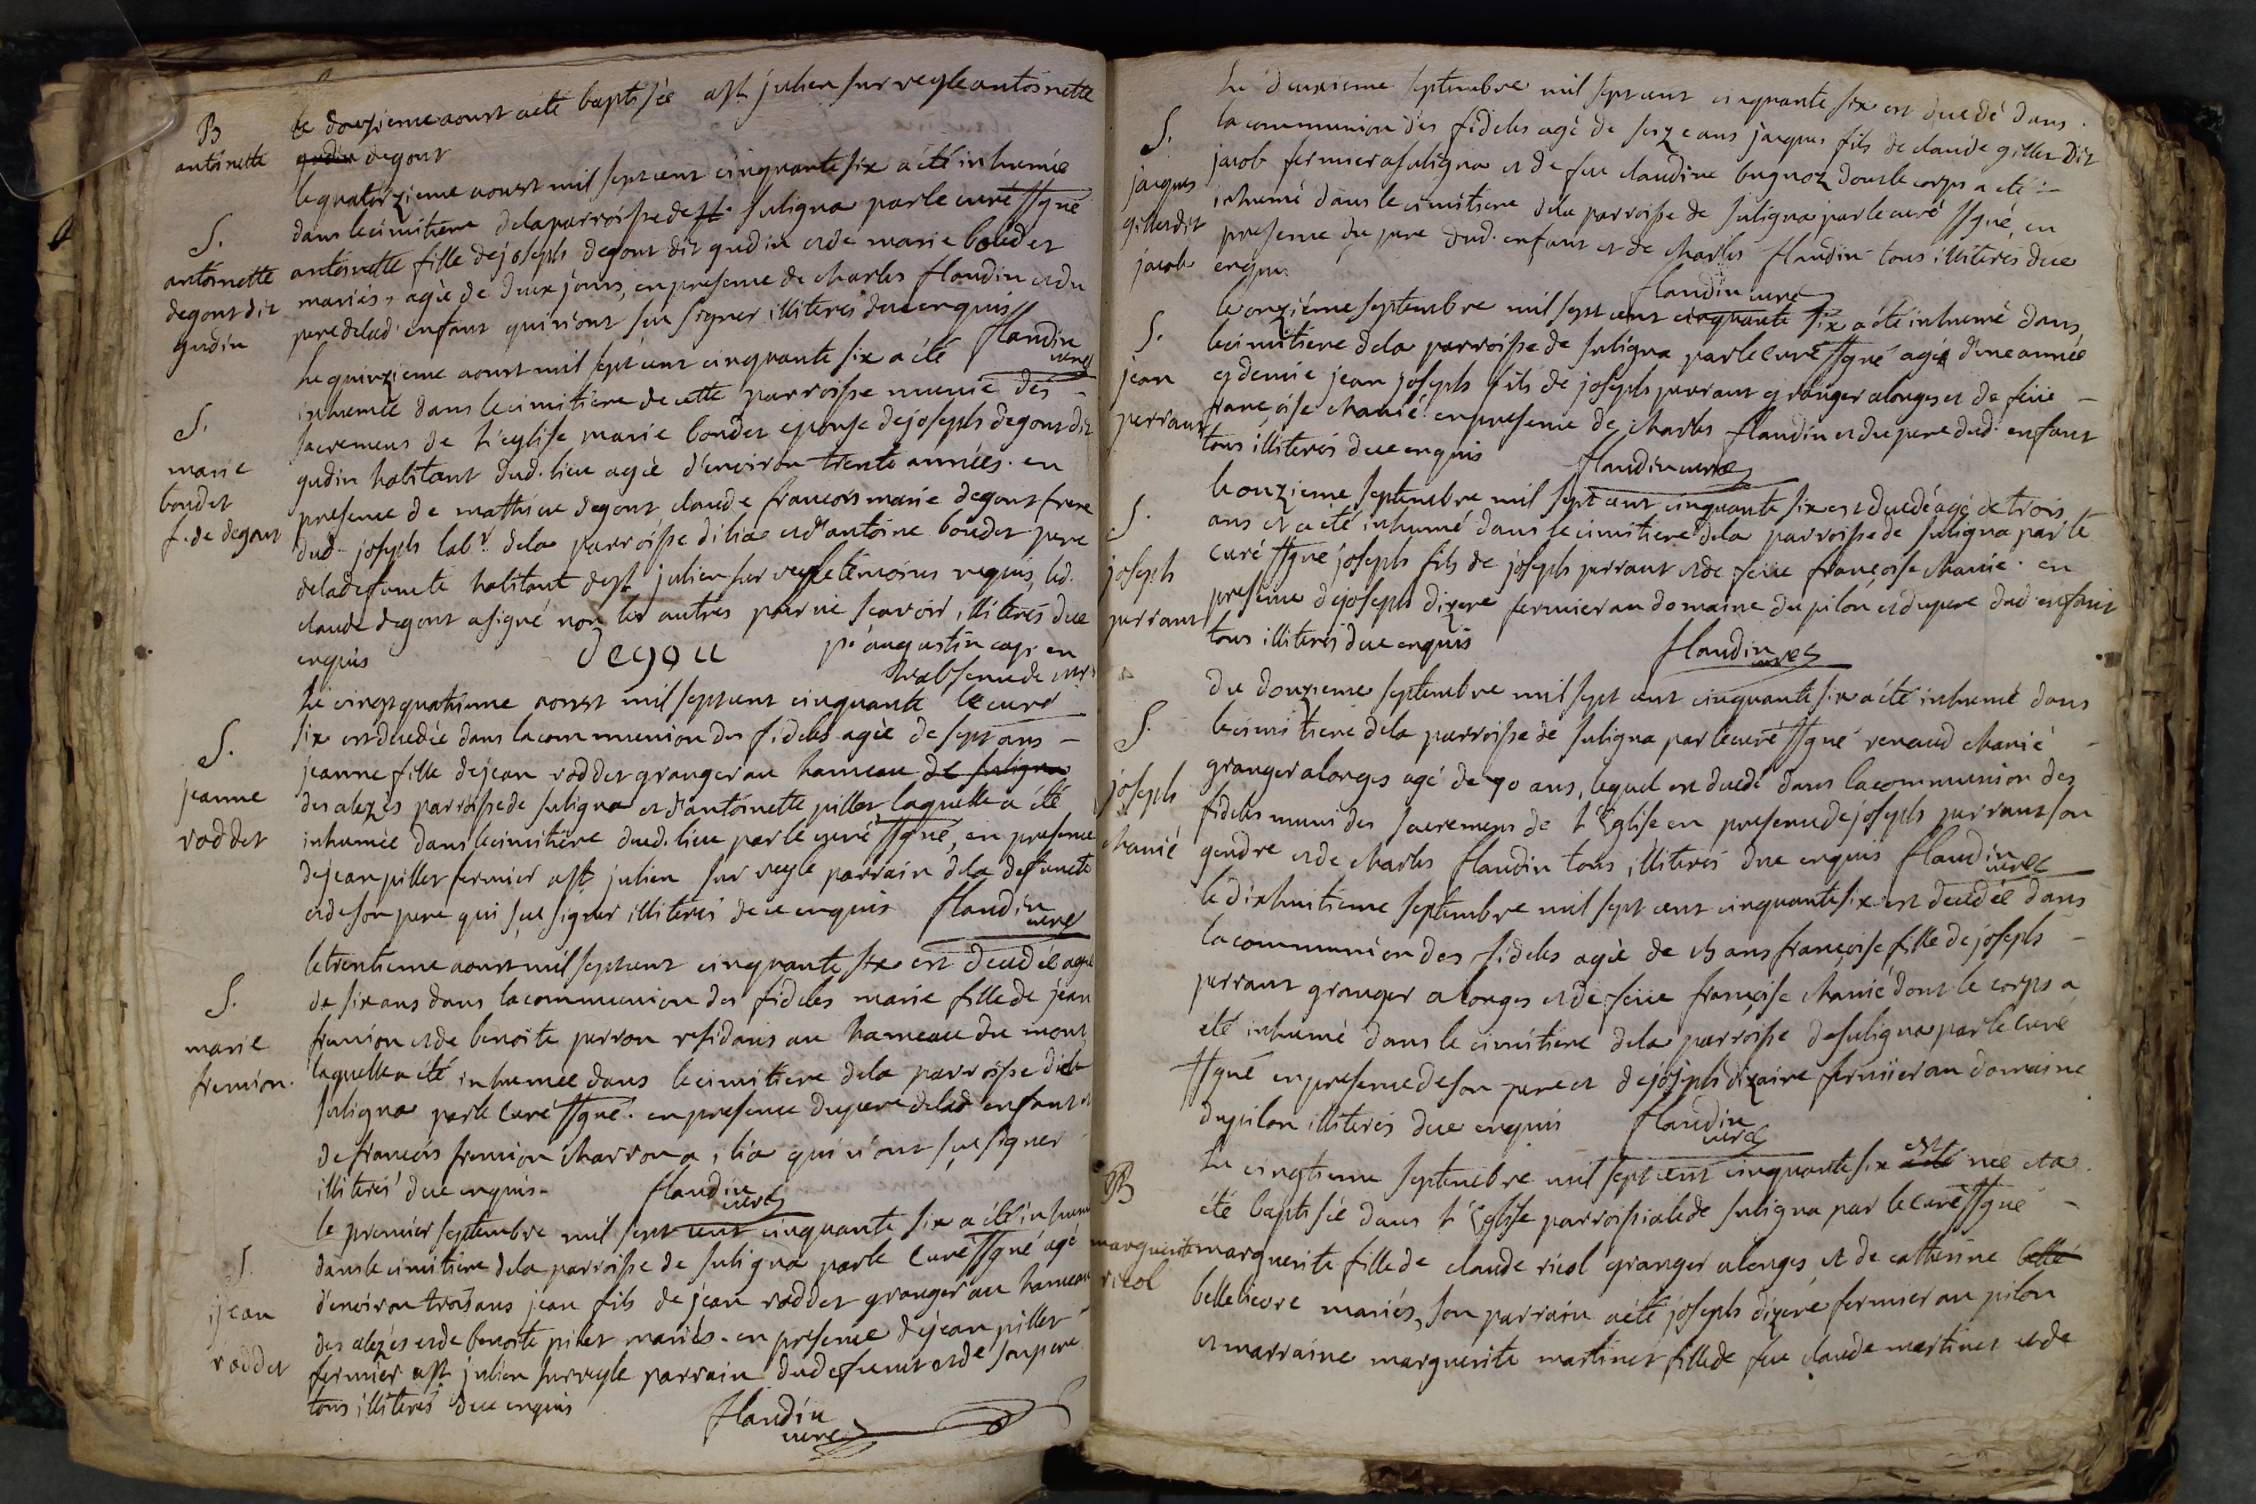 B
antoinette
le douzieme aoust a eté baptisée a st julien sur veyle antoinette
gudin degout
S.
antoinette
degout dit
gudin
le quatorzieme aoust mil sept cent cinquante six a été inhumée
dans le cimitiere de la parroisse de st. suligna par le curé ssgné
antoinette fille de joseph degout dit gudin et de marie boudet
mariés, agée de deux jours, en presence de charles flandin et du
pere de lad. enfant qui n'ont sçu signer illiterés de ce enquis
flandin
curé
S.
marie
boudet
f. de degout
Le quinzieme aoust mil sept cent cinquante six a été
inhumée dans le cimitiere de cette parroisse munie des
sacremens de L'eglise marie boudet epouse de joseph degout dit
gudin habitant dud. lieu agée d'environ trente années. en
presence de mathieu degout claude francois marie degout frere
dud. joseph labr. de la parroisse d'ilia et d'antoine boudet pere
de la defuncte habitant de st julien sur veyle temoins requis, led.
claude degout a signé non les autres pour ne sçavoir, illiterés de ce
enquis
degou
pe. augustin cap. en
L'absence de mr
le curé
S.
jeanne
roddet
Le vingt quatrieme aoust mil sept cent cinquante
six est decedée dans la communion des fideles agée de sept ans
jeanne fille de jean roddet granger au hameau de suligna
des alezes parroisse de suligna et d'antoinette pillet laquelle a été
inhumée dans le cimitiere dud. lieu par le curé ssgné, en presence
de jean pillet fermier a st julien sur veyle parrain de la defuncte
et de son pere qui sçu signer illiterés de ce enquis
flandin
curé
S.
marie
fremion.
le trentieme aoust mil sept cent cinquante six est decedée agée
de six ans dans la communion des fideles marie fille de jean
fremion et de benoite perron residans au hameau du mont
laquelle a été inhumée dans le cimitiere de la parroisse de
suligna par le curé ssgné. en presence du pere de lad enfant et
de francois fremion charron a ilia qui n'ont sçu signer
illiterés de ce enquis.
flandin
curé
S.
jean
roddet
le premier septembre mil sept cent cinquante six a été inhumé
dans le cimitiere de la parroisse de suligna par le curé ssgné agé
d'environ trois ans jean fils de jean roddet granger au hameau
des alezes et de benoite pillet mariés. en presence de jean pillet
fermier a st julien sur veyle parrain du defunct et de son pere
tous illiterés de ce enquis
flandin
curé
S.
jacques
gillet dit
jacob
Le deuxieme septembre mil sept cent cinquante six est decedé dans
la communion des fideles agé de seze ans jacques fils de claude gillet dit
jacob fermier a suligna et de feu claudine bugnoz dont le corps a eté
inhumé dans le cimitiere de la parroisse de suligna par le curé ssgné, en
presence du pere dud. enfant et de charles flandin tous illiterés de ce
enquis
flandin curé
S.
jean
perraut
le onzième septembre mil sept cent cinquante six a été inhumé dans
le cimitiere de la parroisse de suligna par le curé ssgné agé d'une année
et demie jean joseph fils de joseph perraut granger a longes et de feüe
françoise chanié. en presence de charles flandin et du pere dud. enfant
tous illiterés de ce enquis
flandin curé
S.
joseph
perraut
le onzieme septembre mil sept cent cinquante six est decedé agé de trois
ans et a été inhumé dans le cimitiere de la parroisse de suligna par le
curé ssgné joseph fils de joseph perraut et de feüe françoise chanié. en
presence de joseph dizere fermier au domaine du pilon et du pere dud. enfant
tous illiterés de ce enquis
flandin
curé
S.
joseph
chanié
du douzieme septembre mil sept cent cinquante six a été inhumé dans
le cimitiere de la parroisse de suligna par le curé ssgné renaud chanié
granger a longes agé de 70 ans, lequel est decedé dans la communion des
fideles muni des sacremens de L'Eglise en presence de joseph perraut son
gendre et de charles flandin tous illiterés de ce enquis flandin
curé
le dixhuitieme septembre mil sept cent cinquante six est decedée dans
la communion des fideles agée de ans françoise fille de joseph
perraut granger a longes et de feüe françoise chanié dont le corps a
été inhumé dans le cimitiere de la parroisse de suligna par le curé
ssgné en presence de son pere et de joseph dizaire fermier au domaine
du pilon illiterés de ce enquis
flandin
curé
B
marguerite
ricol
Le vingtieme septembre mil sept cent cinquante six est née et a
été baptisée dans L'Eglise parroissiale de suligna par le curé ssgné
marguerite fille de claude ricol granger a longes, et de catherine belle
bellelievre mariés, son parrain a été joseph dizere fermier au pilon
et marraine marguerite martinet fille de feu claude martinet et de